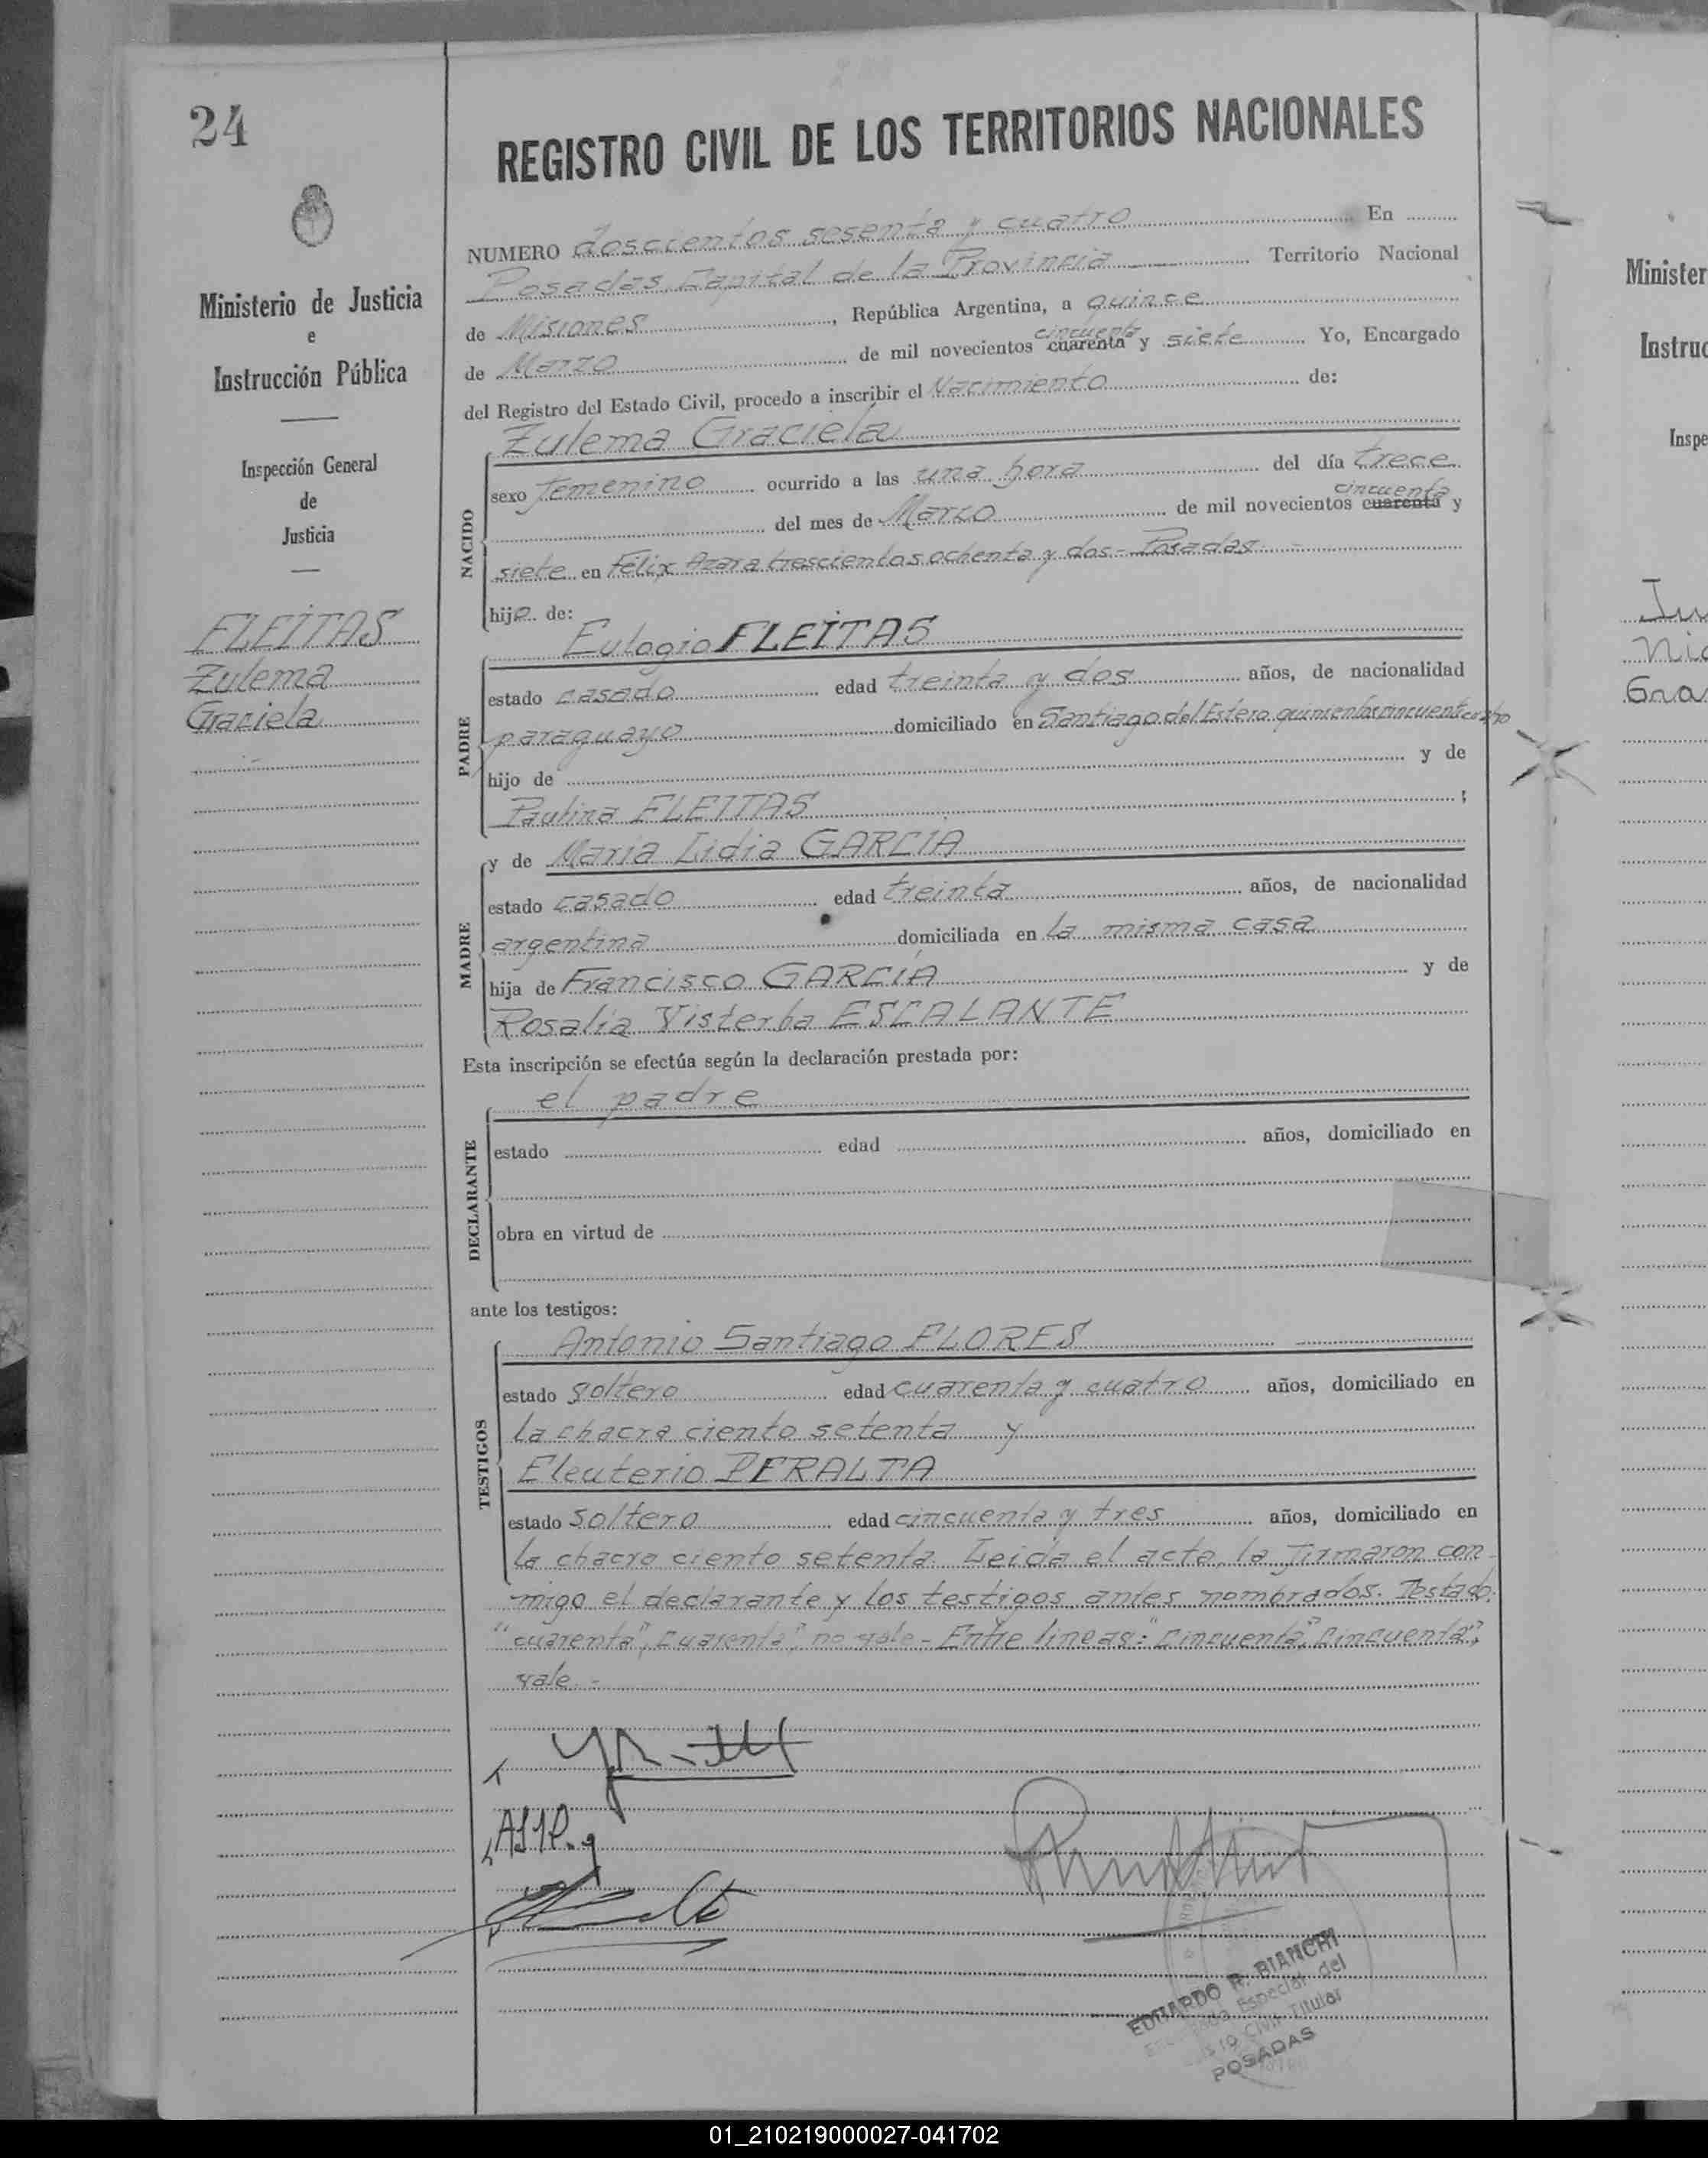 24
REGISTRO CIVIL DE LOS TERRITORIOS NACIONALES
Ministerio de Justicia
e
Instrucción Pública
Inspección General
de
Justicia
FLEITAS
Zulema
Graciela
NUMERO doscientos sesenta y cuatro En
Posadas Capital de la Provincia Territorio Nacional
de Misiones, República Argentina, a quince
cincuenta
de Marzo de mil novecientos cuarenta y siete Yo, Encargado
del Registro del Estado Civil, procedo a inscribir el Nacimiento de:
NACIDO
Zulema Graciela
sexo femenino ocurrido a las una hora del día trece
cincuenta
del mes de Marzo de mil novecientos cuarenta y
siete en Félix Azara trescientos ochenta y dos - Posadas
hija de:
PADRE
Eulogio FLEITAS
estado casado edad treinta y dos años, de nacionalidad
paraguayo domiciliado en Santiago del Estero quinientos cincuenticuatro
hijo de y de
Paulina FLEITAS ;
MADRE
y de María Lidia GARCIA
estado casado edad treinta años, de nacionalidad
argentina domiciliada en la misma casa
hija de Francisco GARCÍA y de
Rosalía Visterba ESCALANTE
Esta inscripción se efectúa según la declaración prestada por:
DECLARANTE
el padre
estado edad años, domiciliado en
obra en virtud de
ante los testigos:
TESTIGOS
Antonio Santiago FLORES
estado soltero edad cuarenta y cuatro años, domiciliado en
la chacra ciento setenta y
Eleuterio PERALTA
estado soltero edad cincuenta y tres años, domiciliado en
la chacra ciento setenta. Leida el acta, la firmaron con
migo el declarante y los testigos antes nombrados. Testado:
"cuarenta", cuarenta", no vale - Entre lineas: "cincuenta", cincuenta",
vale. -
EDUARDO R. BIANCHI
Especial del
Civil Titular
POSADAS
Minister
Instruc
Inspe
Gra
01_210219000027-041702